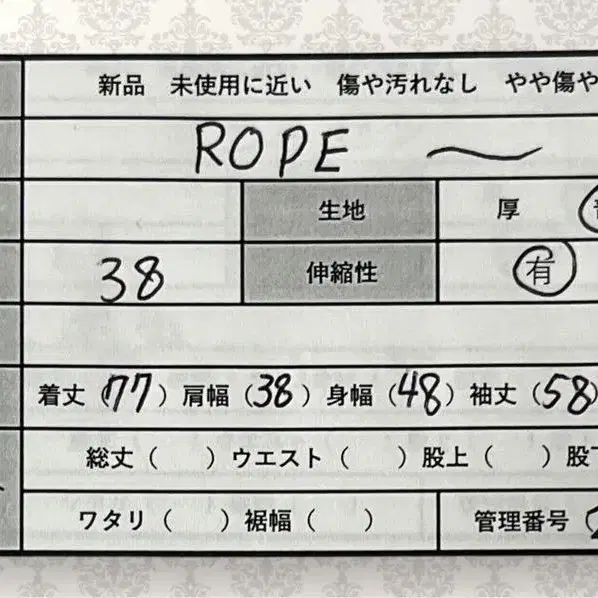 新品 未使用に近い 傷や汚れなし やや傷や
ROPE ～
生地 厚
38 伸縮性 有
着丈 (77) 肩幅 (38) 身幅 (48) 袖丈 (58)
総丈 ( ) ウエスト ( ) 股上 ( ) 股下
ワタリ ( ) 裾幅 ( ) 管理番号